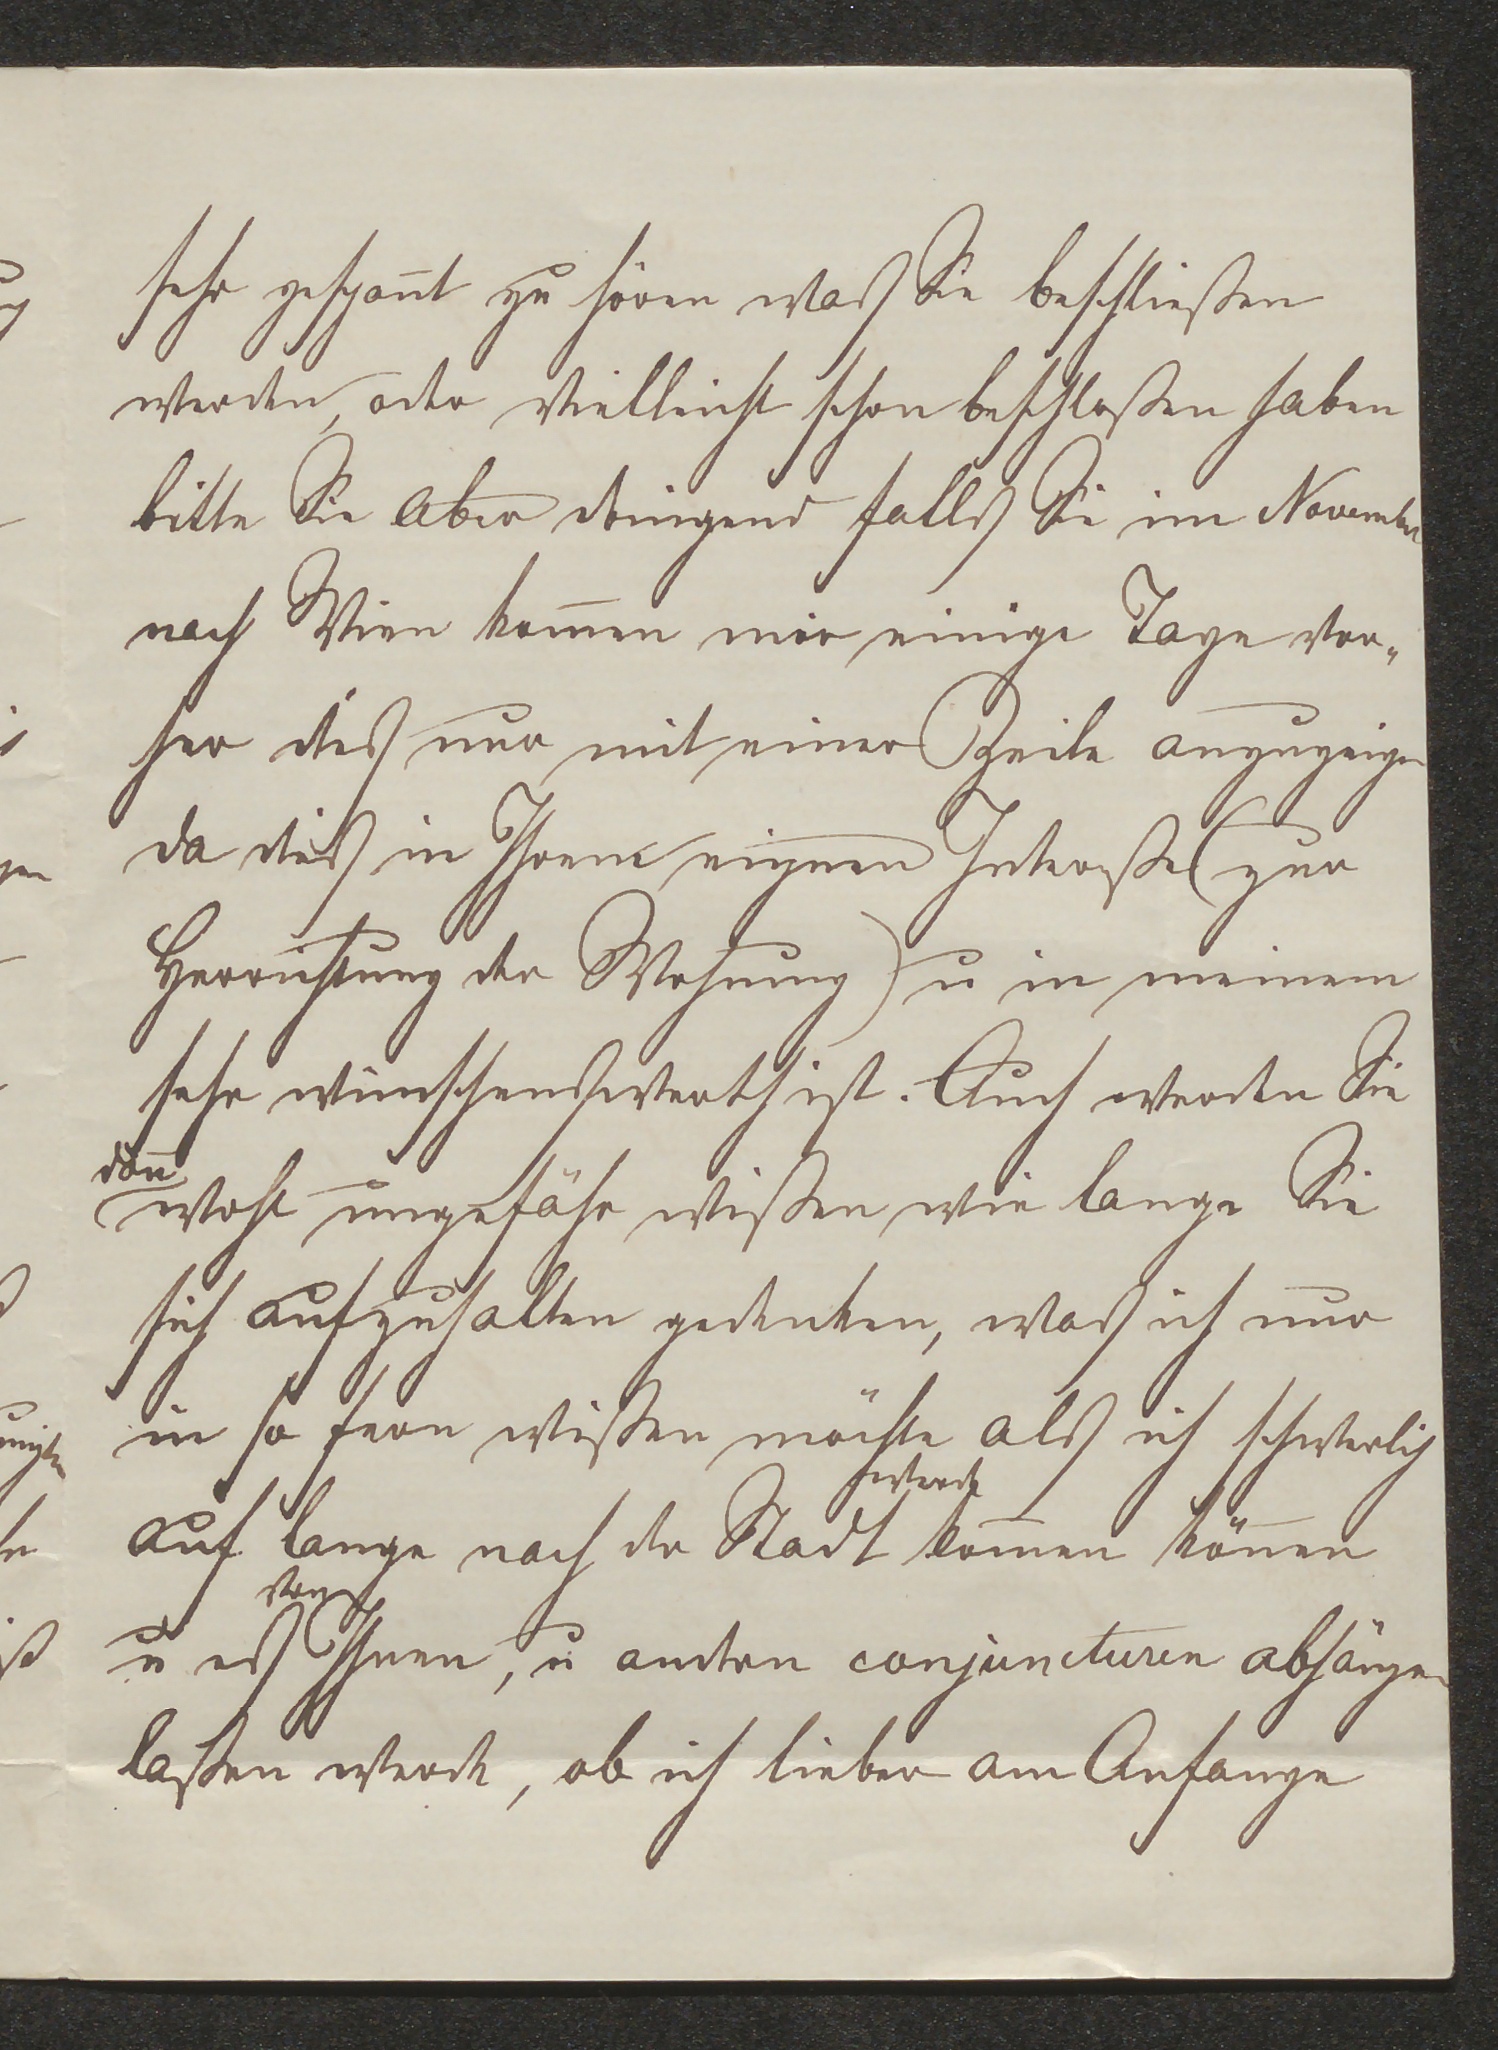 sehr gespan̄t zu hören was Sie beschließen
werden, oder vielleicht schon beschloßen haben
bitte Sie aber dringend falls Sie im November
nach Wien kom̄en mir einige Tage vor„
her dies nur mit einer Zeile anzuzeigen
da dies in Ihrem eignen Interesse (zur
Herrichtung der Wohnung) u in meinem
sehr wünschenswerth ist. Auch werden Sie
dan̄
wohl ungefähr wißen wie lange Sie
sich aufzuhalten gedenken, was ich nur
in so fern wißen möchte als ich schwerlich
werde
auf lange nach der Stadt kom̄en kön̄en
von
u es Ihnen, u andern conjuncturen abhängen
laßen werde, ob ich lieber am Anfange